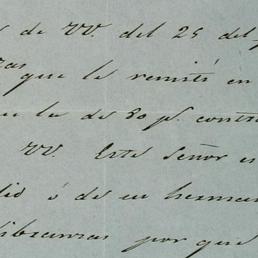 de VV. del 25 del
que le remití en
la de 80 ps. contra
VV. Este Señor es
ó de su hermano
libranzas por qué